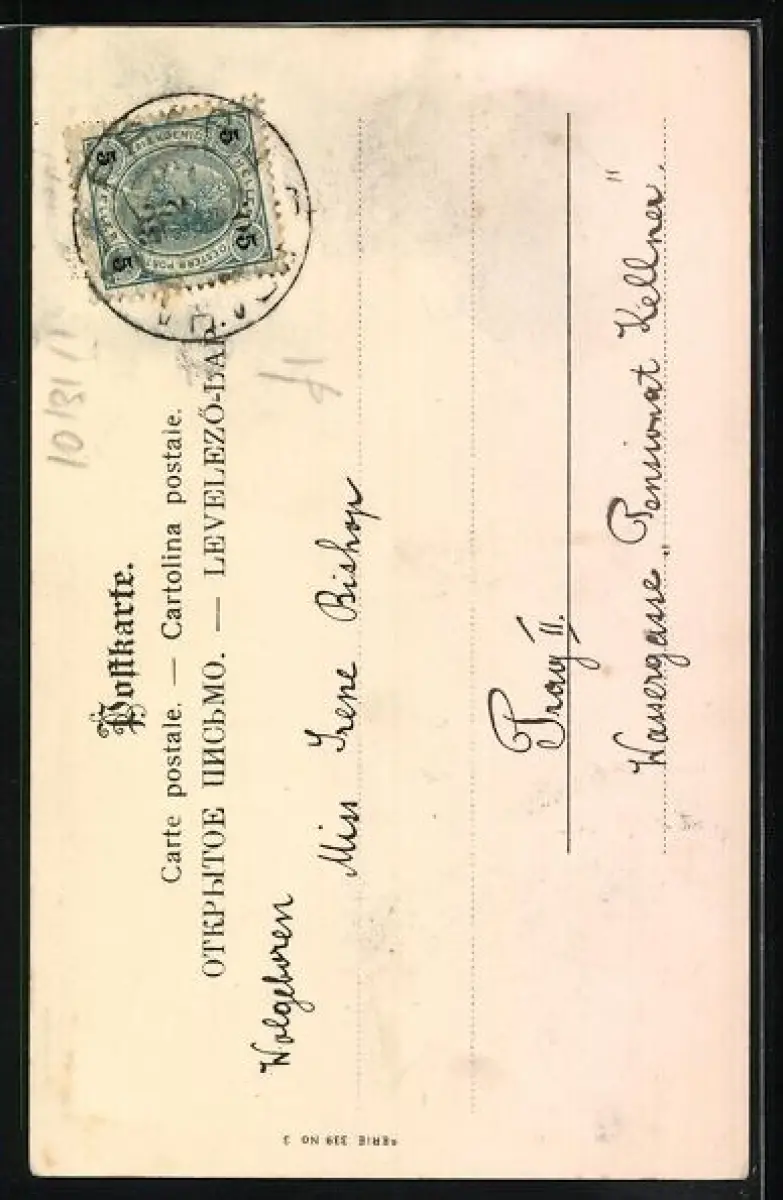 Postkarte.
Carte postale. — Cartolina postale.
ОТКРЫТОЕ ПИСЬМО. — LEVELEZŐ-LAP.
5 5 5 5
10/31/1
Wolgeboren
Miss Irene Bishop
Prag II.
Wassergasse „Pensionat Kellner"
SERIE 339 NO 3